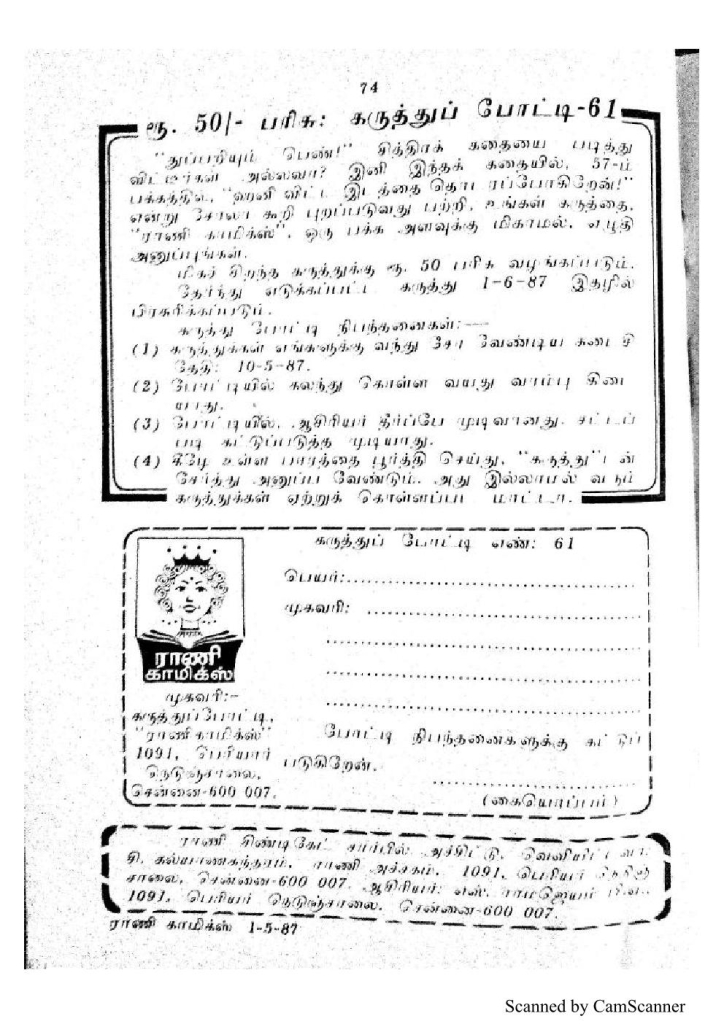 74
ரூ. 50/- பரிசு: கருத்துப் போட்டி-61
"துப்பறியும் பெண்!" சித்திரக் கதையை படித்து
விட்டீர்கள் அல்லவா? இனி இந்தக் கதையில், 57-ம்
பக்கத்தில், "ஹனி விட்ட இடத்தை தொடரப்போகிறேன்!"
என்று சோலா கூறி புறப்படுவது பற்றி, உங்கள் கருத்தை,
"ராணி காமிக்ஸ்", ஒரு பக்க அளவுக்கு மிகாமல், எழுதி
அனுப்புங்கள்.
மிகச் சிறந்த கருத்துக்கு ரூ. 50 பரிசு வழங்கப்படும்.
தேர்ந்து எடுக்கப்பட்ட கருத்து 1-6-87 இதழில்
பிரசுரிக்கப்படும்.
கருத்து போட்டி நிபந்தனைகள்:—
(1) கருத்துக்கள் எங்களுக்கு வந்து சேர வேண்டிய கடைசி
தேதி: 10-5-87.
(2) போட்டியில் கலந்து கொள்ள வயது வரம்பு கிடை
யாது.
(3) போட்டியில், ஆசிரியர் தீர்ப்பே முடிவானது. சட்டப்
படி கட்டுப்படுத்த முடியாது.
(4) கீழே உள்ள பாரத்தை பூர்த்தி செய்து, "கருத்து"டன்
சேர்த்து அனுப்ப வேண்டும். அது இல்லாமல் வரும்
கருத்துக்கள் ஏற்றுக் கொள்ளப்பட மாட்டா.
கருத்துப் போட்டி எண்: 61
பெயர்:
முகவரி:
ராணி
காமிக்ஸ்
முகவரி:-
கருத்துப்போட்டி,
"ராணிகாமிக்ஸ்"
1091, பெரியார்
நெடுஞ்சாலை,
சென்னை-600 007.
போட்டி நிபந்தனைகளுக்கு கட்டுப்
படுகிறேன்.
(கையொப்பம்)
ராணி சிண்டிகேட் சார்பில் அச்சிட்டு, வெளியிட்டவர்:
சி. கல்யாணசுந்தரம், ராணி அச்சகம், 1091, பெரியார் நெடுஞ்
சாலை, சென்னை-600 007. ஆசிரியர்: எஸ். ராமஜெயம்
1091, பெரியார் நெடுஞ்சாலை, சென்னை-600 007.
ராணி காமிக்ஸ் 1-5-87
Scanned by CamScanner